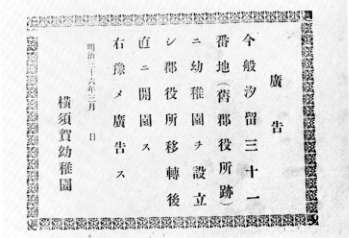 廣告
今般汐留三十一
番地(舊郡役所跡)
ニ幼稚園ヲ設立
シ郡役所移轉後
直ニ開園ス
右豫メ廣告ス
明治三十六年三月 日
橫須賀幼稚園